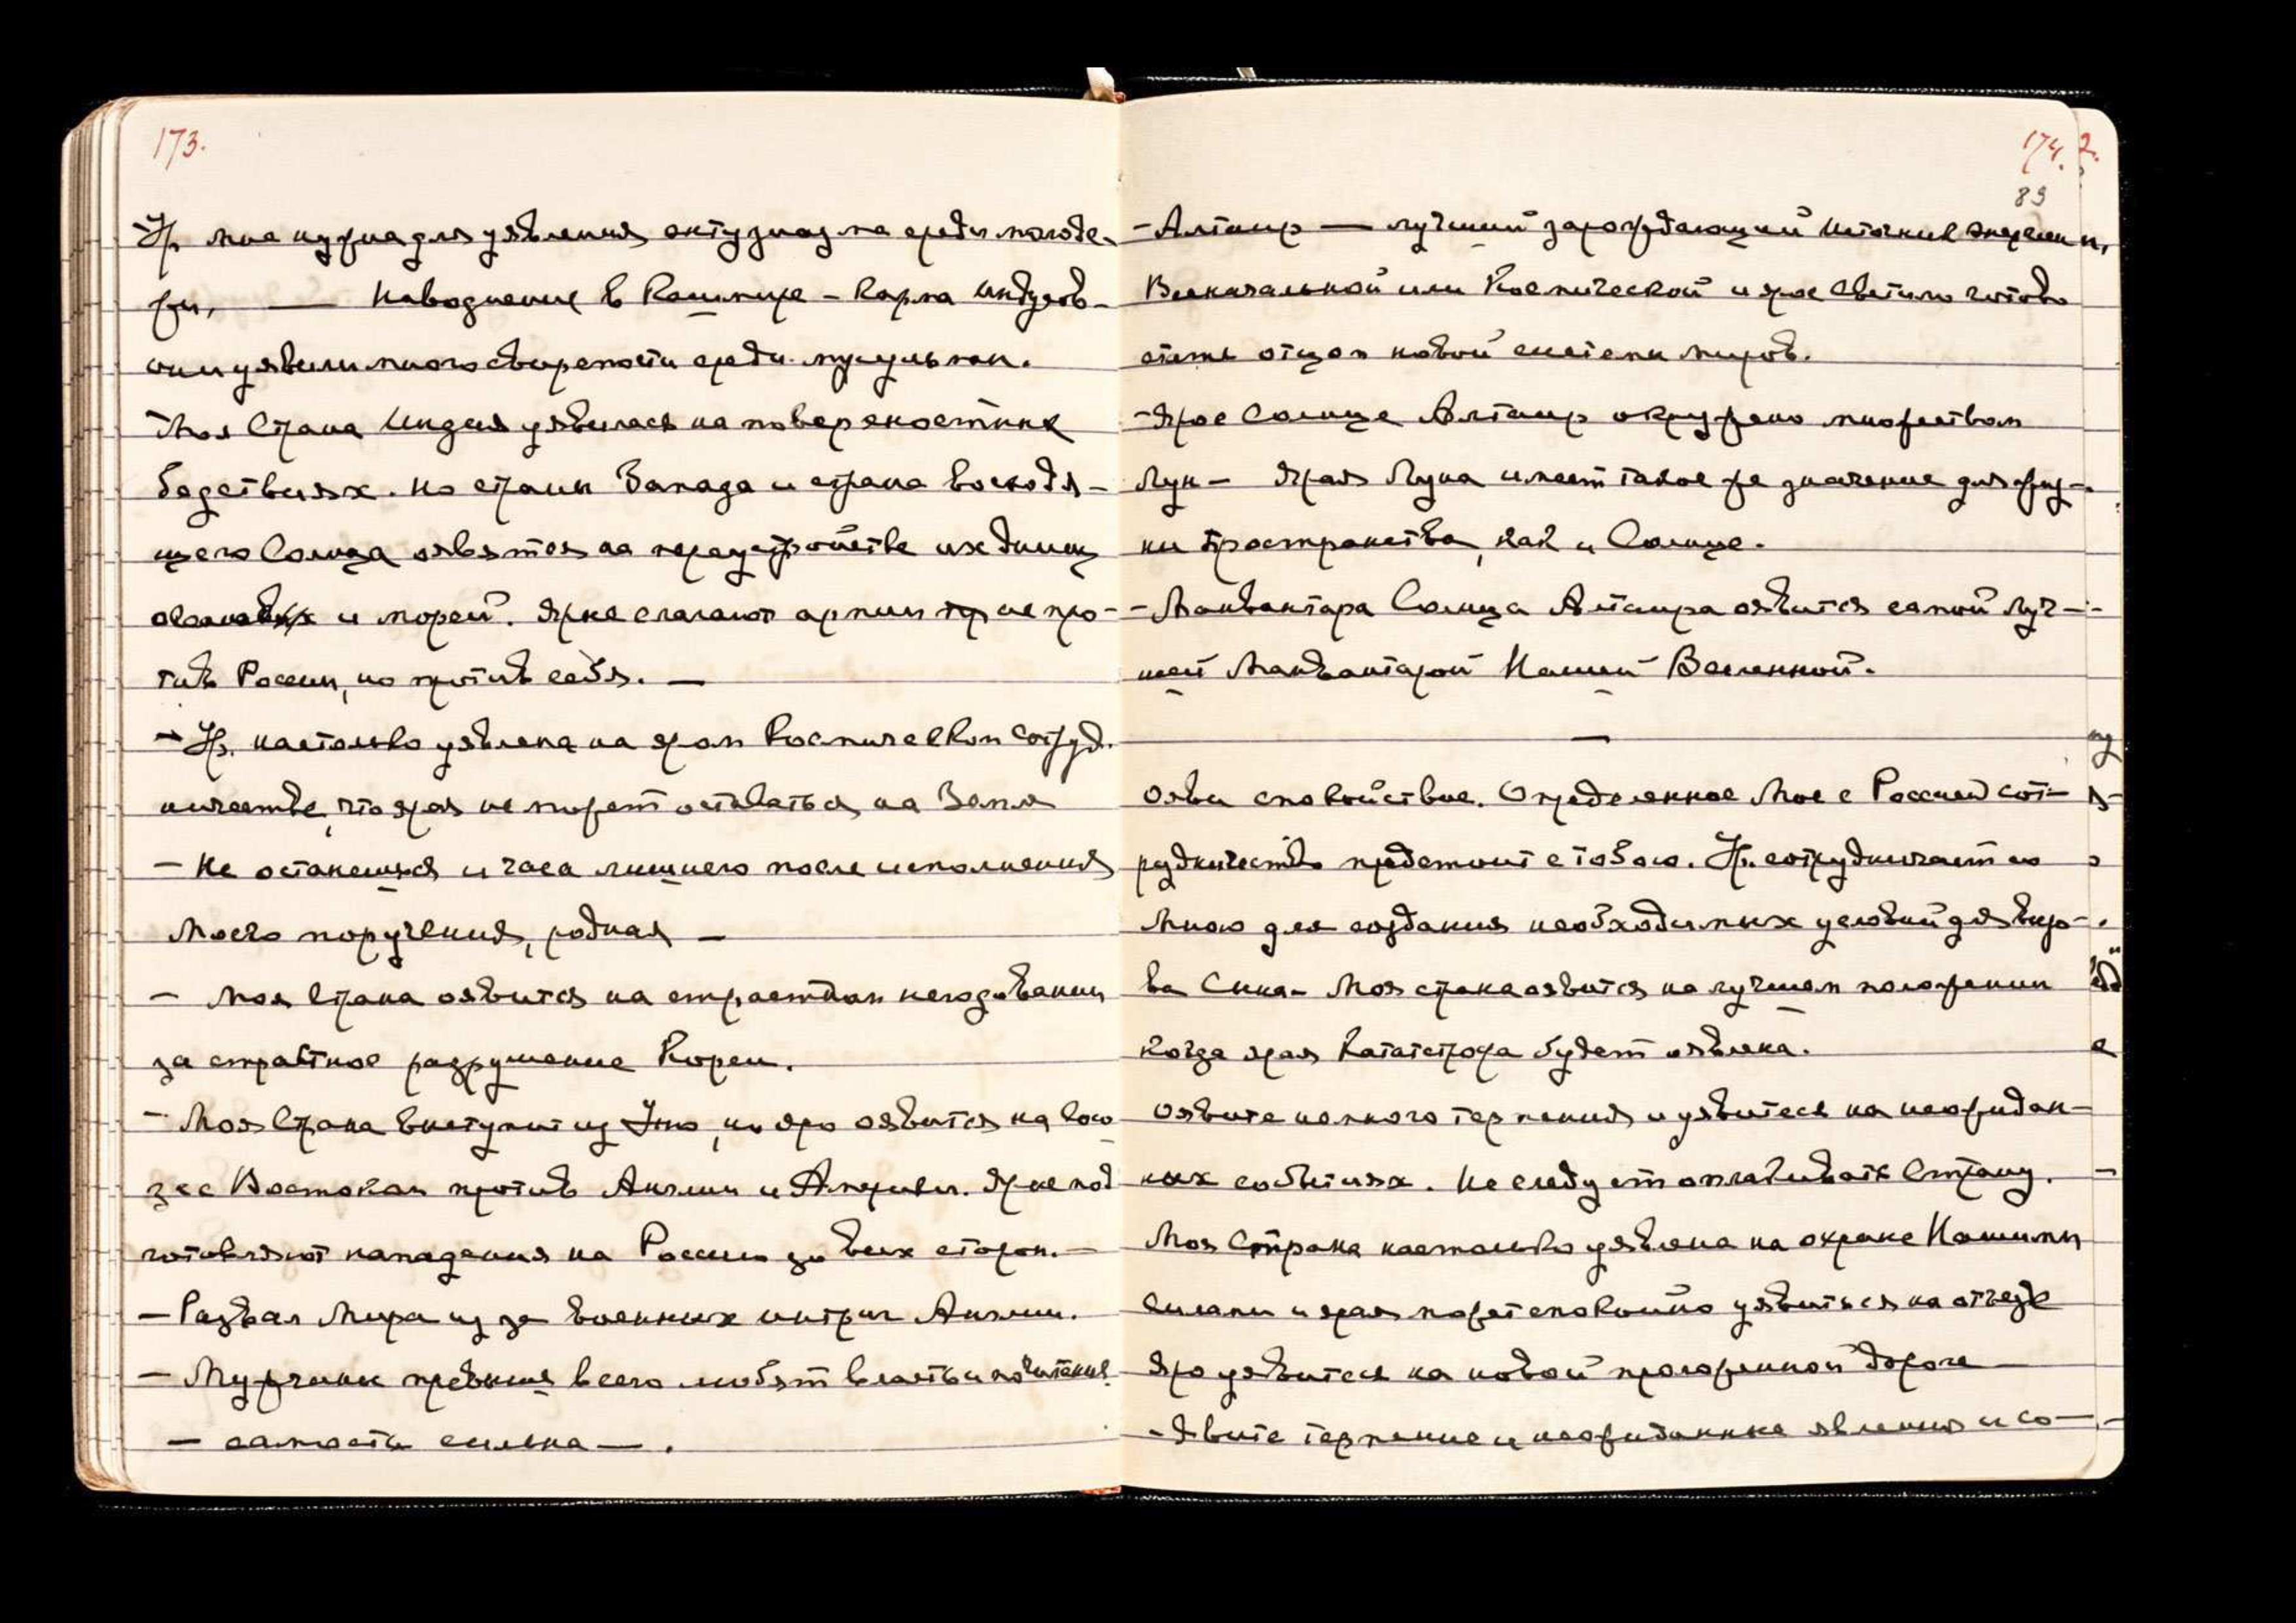 173.
Ур. мне нужна для уявления энтузиазма среди молоде-
жи, — Наводнение в Кашмире – Карма Индусов –
они уявили много свирепости среди мусульман.
Моя Страна Индия уявилась на поверхностных
бедствиях. Но страны Запада и страна Восходя-
щего Солнца оявятся на переустройстве их границ
океанов и морей. Ярые слагают армии не про-
тив России, но против себя. —
– Ур. настолько уявлена на яром Космическом Сотруд.
ничестве, что ярая не может оставаться на Земле
– Не останешься и часа лишнего после исполнения
Моего поручения, родная –
– Моя Страна оявится на страстном негодовании
за страстное разрушение Кореи.
– Моя Страна выступит из Уно, но яро оявится на Сою
зе с Востоком против Англии и Америки. Ярые под
готовляют нападения на Россию со всех сторон. –
– Развал Мира из за военных интриг Англии.
– Мужчины превыше всего любят власть и почитания
– самость сильна – .
174. 2.
89
– Альтаир — лучший зарождающий источник энергии,
Всеначальной или Космической и ярое Светило готово
стать отцом новой системы миров.
– Ярое Солнце Альтаир окружено множеством
Лун – Ярая Луна имеет такое же значение для физи-
ки Пространства, как и Солнце.
– Манвантара Солнца Альтаира оявится самой луч-
шей Манвантарой Нашей Вселенной.
—
Ояви спокойствие. Определенное Мое с Россией сот-
рудничество предстоит с тобою. Ур. сотрудничает со
Мною для создания необходимых условий для
Моя страна оявится на лучшем положении
когда ярая Катастрофа будет оявлена.
Оявите полного терпения и уявитесь на неожидан-
ных событиях. Не следует оплакивать Страну.
Моя Страна настолько уявлена на охране Нашими
Силами и ярая может спокойно уявиться на отъезде
Яро уявитесь на новой проложенной дороге –
– Явите терпение и неожиданные явления и со-